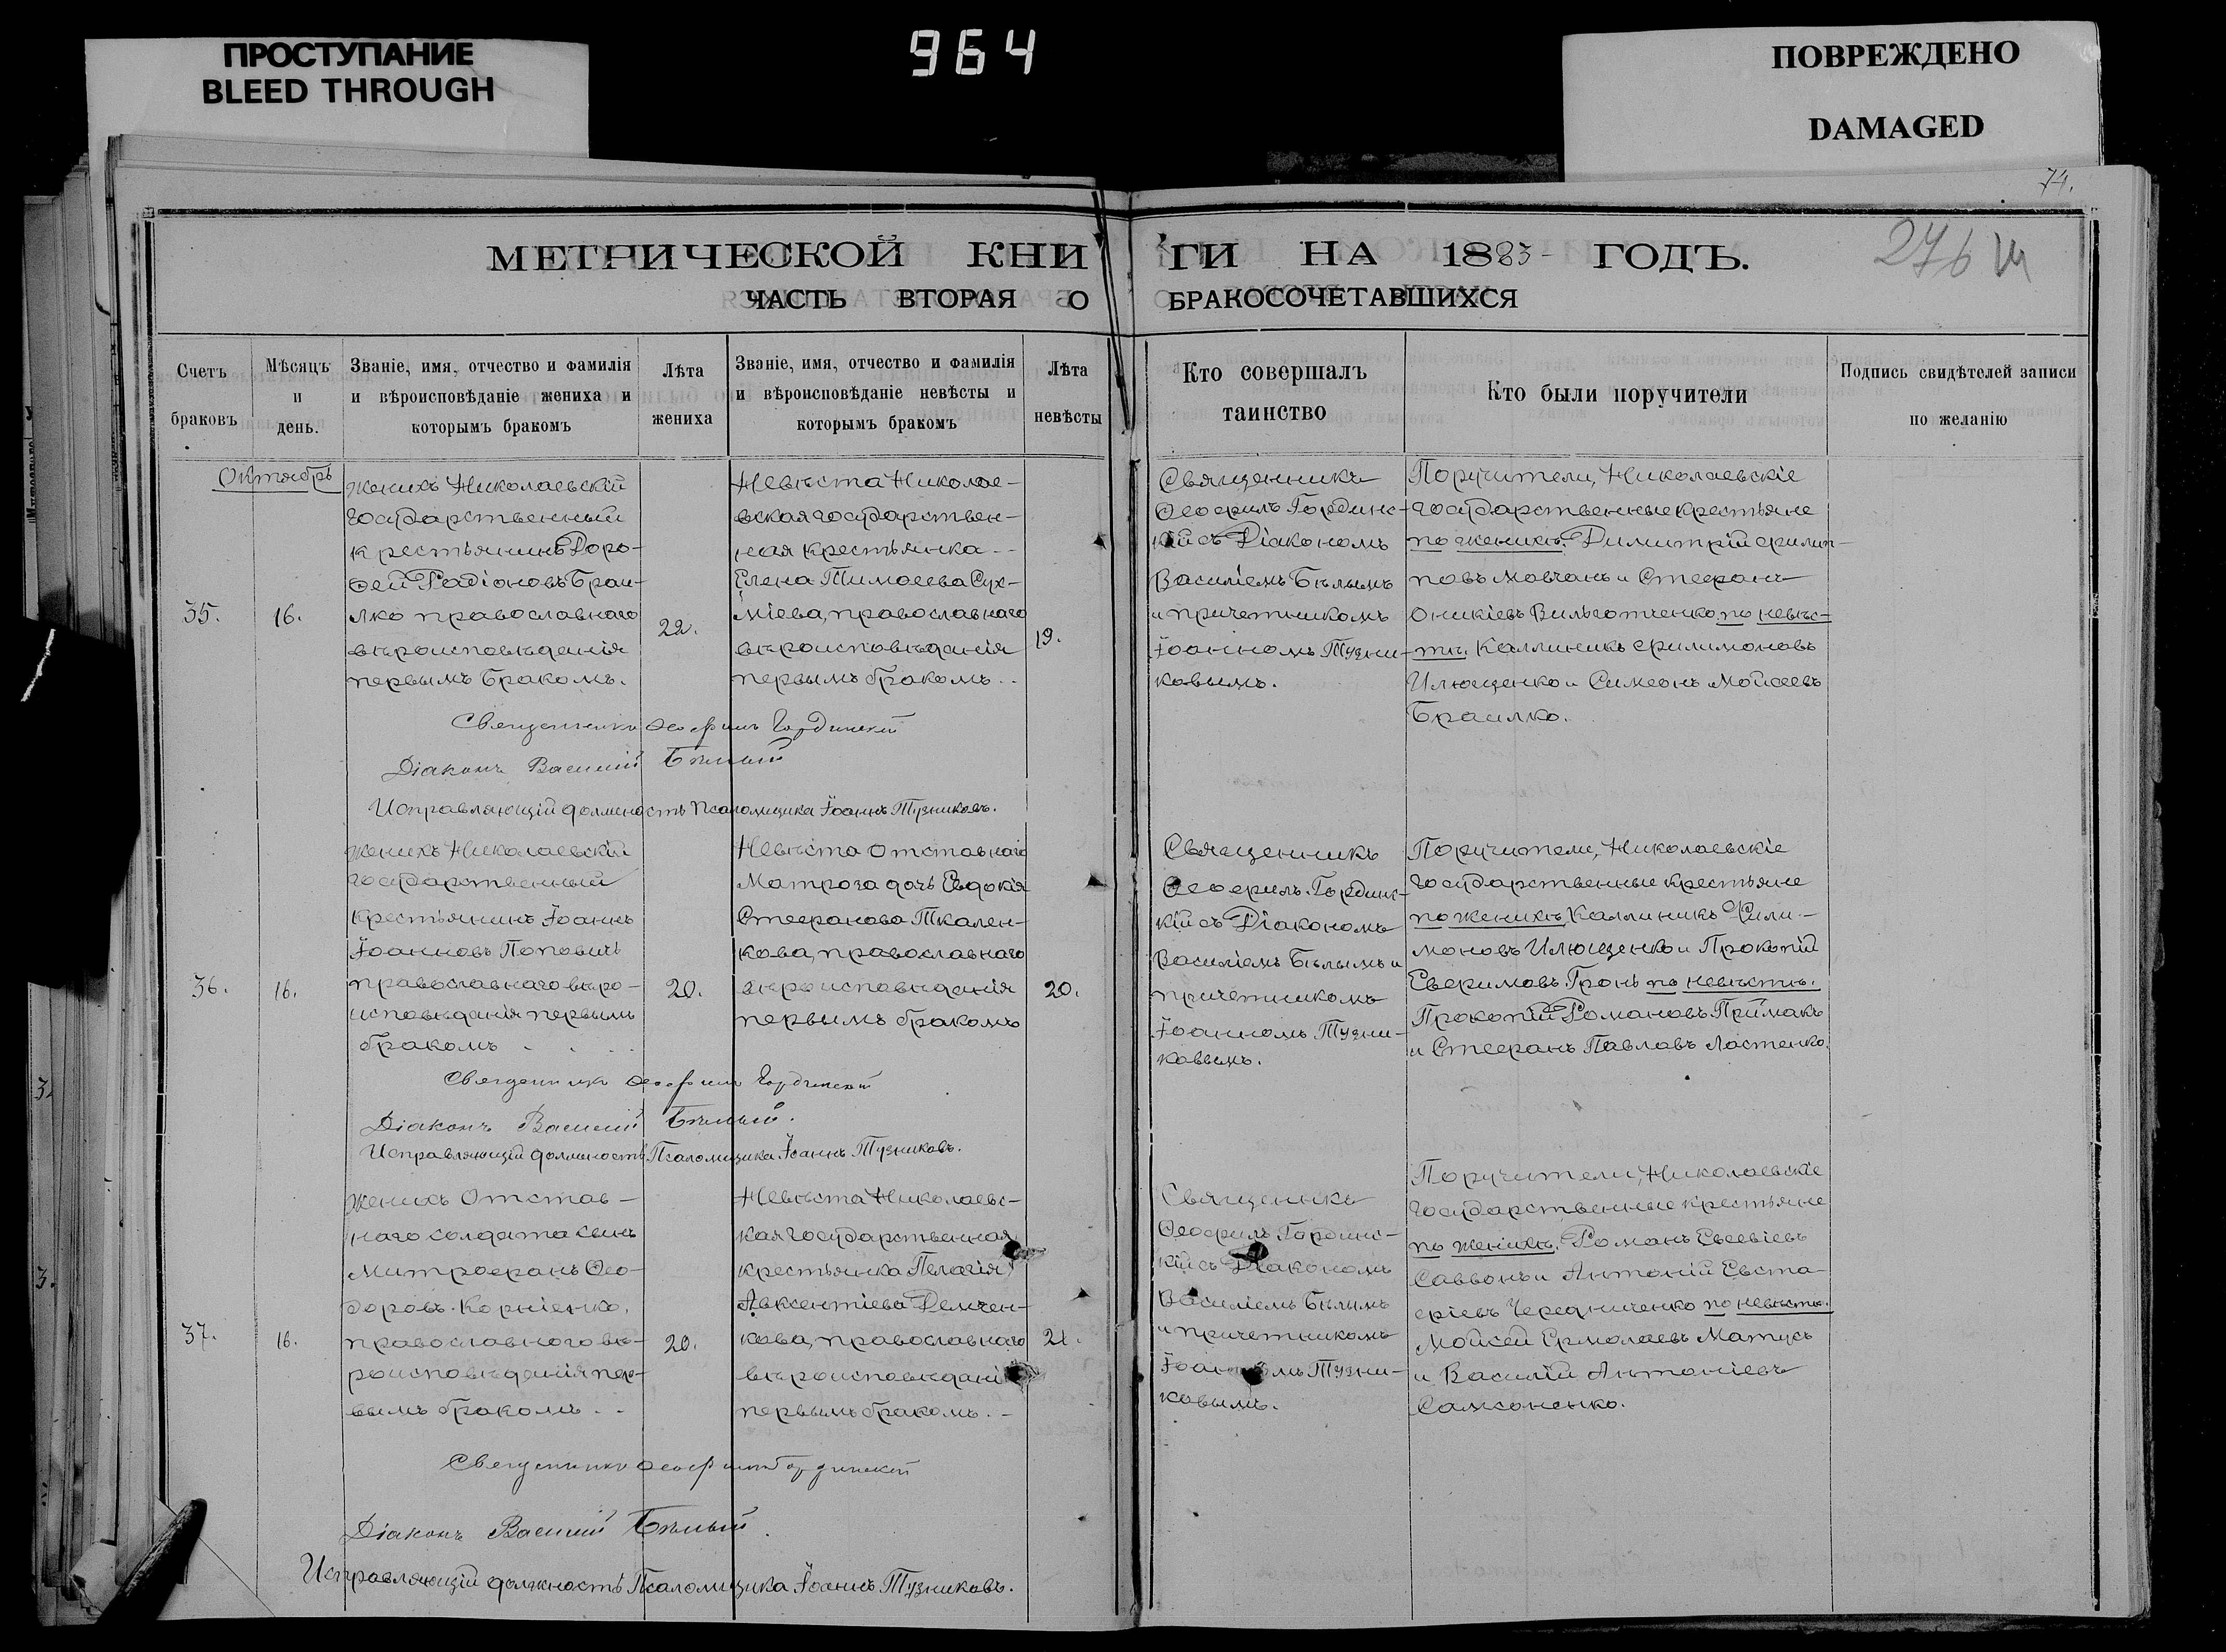 ПРОСТУПАНИЕ
BLEED THROUGH
964
ПОВРЕЖДЕНО
DAMAGED
74.
276
МЕТРИЧЕСКОЙ КНИГИ НА 1883 ГОДЪ.
ЧАСТЬ ВТОРАЯ О БРАКОСОЧЕТАВШИХСЯ
Счетъ
браковъ
Мѣсяцъ
и
день.
Званіе, имя, отчество и фамилія
и вѣроисповѣданіе жениха и
которымъ бракомъ
Лѣта
жениха
Званіе, имя, отчество и фамилія
и вѣроисповѣданіе невѣсты и
которымъ бракомъ
Лѣта
невѣсты
Кто совершалъ
таинство
Кто были поручители
Подпись свидѣтелей записи
по желанію
Октябрь
35.
16.
Женихъ Николаевскій
государственный
крестьянинъ Доро-
ѳей Радіоновъ Браи-
лко православнаго
вѣроисповѣданія
первымъ бракомъ.
22.
Невѣста Николае-
вская государствен-
ная крестьянка
Елена Тимоѳеева Сух-
міева, православнаго
вѣроисповѣданія
первымъ бракомъ.
19.
Священникъ
Ѳеофилъ Гординс-
кій съ Діакономъ
Василіемъ Бѣлымъ
и причетникомъ
Іоанномъ Тузни-
ковымъ.
Поручители, Николаевскіе
государственные крестьяне
по женихѣ: Димитрій Филип-
повъ Мовчанъ и Стефанъ
Оникіевъ Вильготченко по невѣс-
тѣ: Каллиникъ Филимоновъ
Илющенко и Симеонъ Мойсеевъ
Браилко.
Священникъ Ѳеофилъ Гординскій
Діаконъ Василій Бѣлый
Исправляющій должность Псаломщика Іоаннъ Тузниковъ.
36.
16.
Женихъ Николаевскій
государственный
крестьянинъ Іоаннъ
Іоанновъ Поповичъ
православнаго вѣро-
исповѣданія первымъ
бракомъ
20.
Невѣста отставнаго
Матроза дочь Евдокія
Стефанова Ткален-
кова, православнаго
вѣроисповѣданія
первымъ бракомъ
20.
Священникъ
Ѳеофилъ Гординс-
кій съ Діакономъ
Василіемъ Бѣлымъ и
причетникомъ
Іоанномъ Тузни-
ковымъ.
Поручители, Николаевскіе
государственные крестьяне
по женихѣ, Каллиникъ Фили-
моновъ Илющенко и Прокопій
Евфимовъ Гронь по невѣстѣ:
Прокопій Романовъ Приймакъ
и Стефанъ Павловъ Ластенко.
Священникъ Ѳеофилъ Гординскій
Діаконъ Василій Бѣлый.
Исправляющій должность Псаломщика Іоаннъ Тузниковъ.
37.
16.
Женихъ Отстав-
наго солдата сынъ
Митрофанъ Ѳео-
доровъ Корніенко,
православного вѣ-
роисповѣданія пер-
вымъ бракомъ
20.
Невѣста Николаевс-
кая государственная
крестьянка Пелагія
Авксентіева Демчен-
кова, православнаго
вѣроисповѣданія
первымъ бракомъ.
21.
Священникъ
Ѳеофилъ Гординс-
кій съ Діакономъ
Василіемъ Бѣлымъ
и причетникомъ
Іоанномъ Тузни-
ковымъ.
Поручители, Николаевскіе
государственные крестьяне
по женихѣ, Романъ Евсевіевъ
Саввонъ и Антоній Евста-
фіевъ Чередниченко по невѣстѣ.
Мойсей Ермолаевъ Матусъ
и Василій Антоніевъ
Самсоненко.
Священникъ Ѳеофилъ Гординскій
Діаконъ Василій Бѣлый.
Исправляющій должность Псаломщика Іоаннъ Тузниковъ.